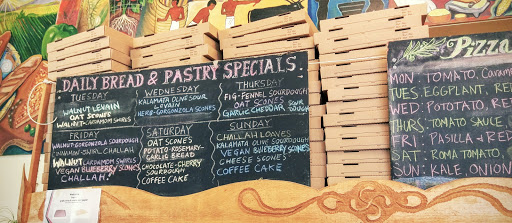 DAILY BREAD & PASTRY SPECIALS
TUESDAY
WALNUT LEVAIN
OAT SCONES
WALNUT-CARDAMOM SWIRLS
WEDNESDAY
KALAMATA OLIVE SOUR
LOVAIN
HERB-GORGONZOLA SCONES
THURSDAY
FIG-FENNEL SOURDOUGH
OAT SCONES
GARLIC CHEDDAR SOUR
DOUGH
FRIDAY
CHALLAH
WALNUT CARDAMOM SWIRLS
VEGAN BLUEBERRY SCONES
CHALLAH!
SATURDAY
OAT SCONES
POTATO-ROSEMARY-
GARLIC BREAD
CHOCOLATE-CHERRY
SOURDOUGH
COFFEE CAKE
SUNDAY
CHALLAH LOAVES
KALAMATA OLIVE SOURDOUGH
VEGAN BLUEBERRY SCONES
CHEESE SCONES
COFFEE CAKE
Pizza
MON: TOMATO, Caram
TUES: EGGPLANT, RE
WED: POTOTATO, RE
THURS: TOMATO SAUCE
FRI: PASILLA & RE
SAT: ROMA TOMATO,
SUN: KALE, ONION